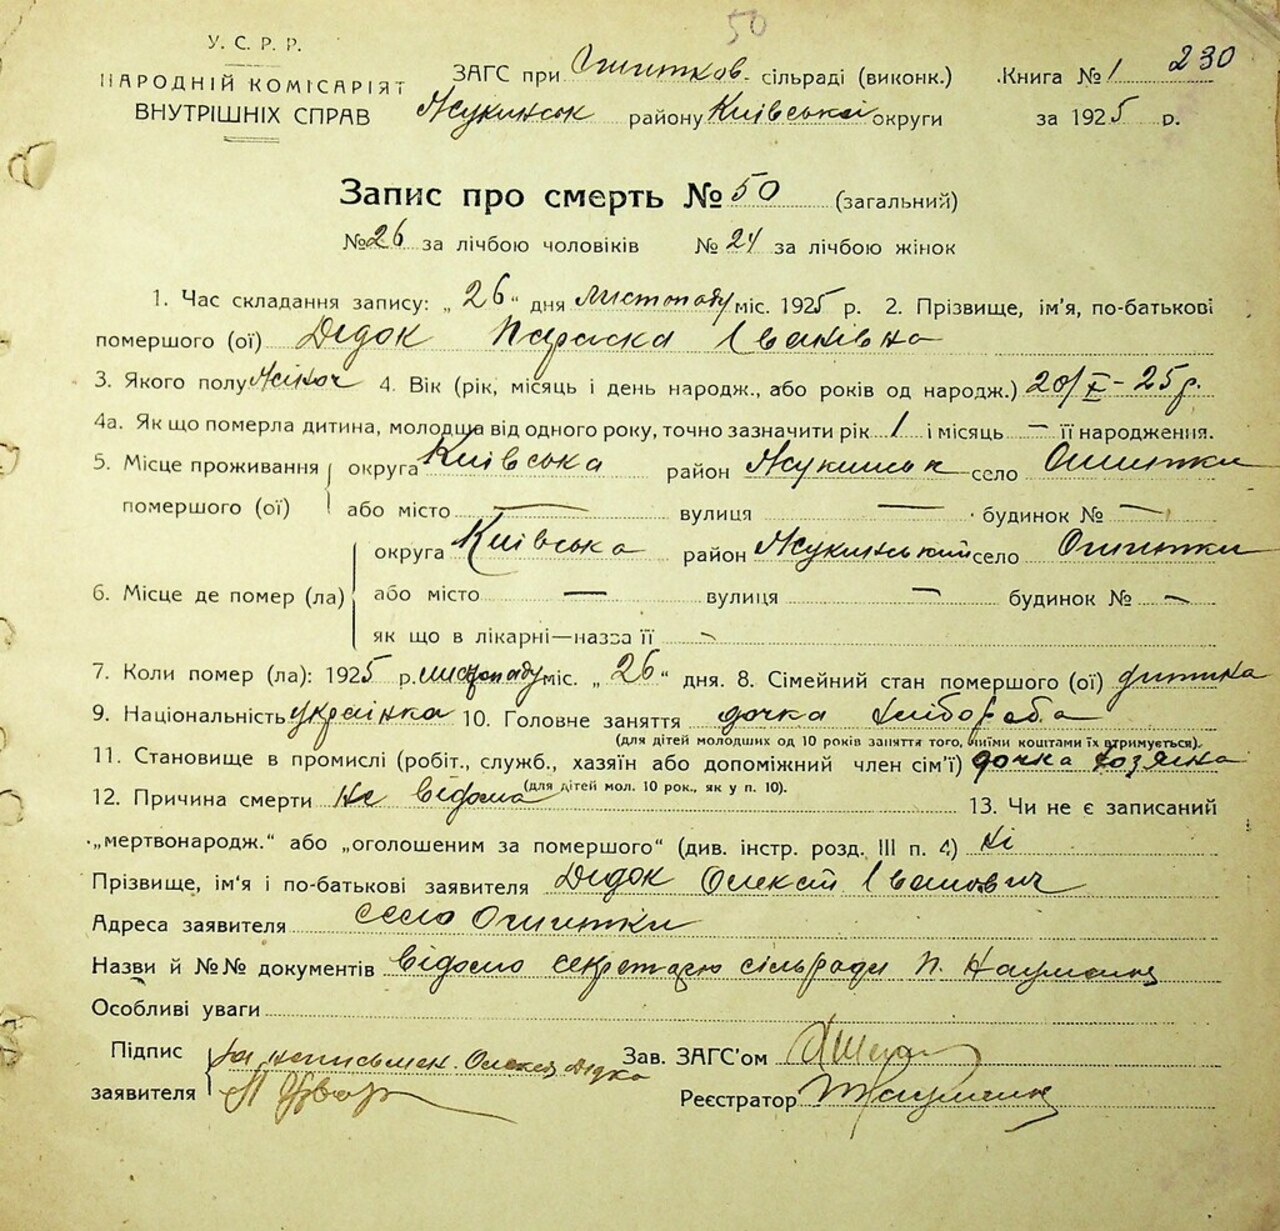 50
230
У. С. Р. Р.
НАРОДНІЙ КОМІСАРІЯТ
ВНУТРІШНІХ СПРАВ
ЗАГС при сільраді (виконк.)
Жукинськ району Київської округи
Книга № 1
за 1925 р.
Запис про смерть № 50 (загальний)
№ 26 за лічбою чоловіків № 24 за лічбою жінок
1. Час складання запису: „ 26 “ дня листопаду міс. 1925 р. 2. Прізвище, ім’я, по-батькові
помершого (ої) Дідок Параска Іванівна
3. Якого полу жіноч 4. Вік (рік, місяць і день народж., або років од народж.) 20/X – 25 р.
4а. Як що померла дитина, молодша від одного року, точно зазначити рік 1 і місяць — її народження.
5. Місце проживання помершого (ої) округа Київська район Жукинськ село Ошитки
або місто — вулиця — будинок № —
6. Місце де помер (ла) округа Київська район Жукинський село Ошитки
або місто — вулиця — будинок № —
як що в лікарні—назва її —
7. Коли помер (ла): 1925 р. листопаду міс. „ 26 “ дня. 8. Сімейний стан помершого (ої) дитина
9. Національність українка 10. Головне заняття дочка хлібороба
(для дітей молодших од 10 років заняття того, чиїми коштами їх втримується).
11. Становище в промислі (робіт., служб., хазяїн або допоміжний член сім’ї) дочка хозяїна
(для дітей мол. 10 рок., як у п. 10).
12. Причина смерти не відома 13. Чи не є записаний
„мертвонародж.“ або „оголошеним за помершого“ (див. інстр. розд. III п. 4) ні
Прізвище, ім’я і по-батькові заявителя Дідок Олексій Іванович
Адреса заявителя село Ошитки
Назви й №№ документів відомо секретарю сільради П. Науменк
Особливі уваги
Підпис заявителя За неписьмен. Олексія Дідка
Зав. ЗАГС’ом
Реєстратор